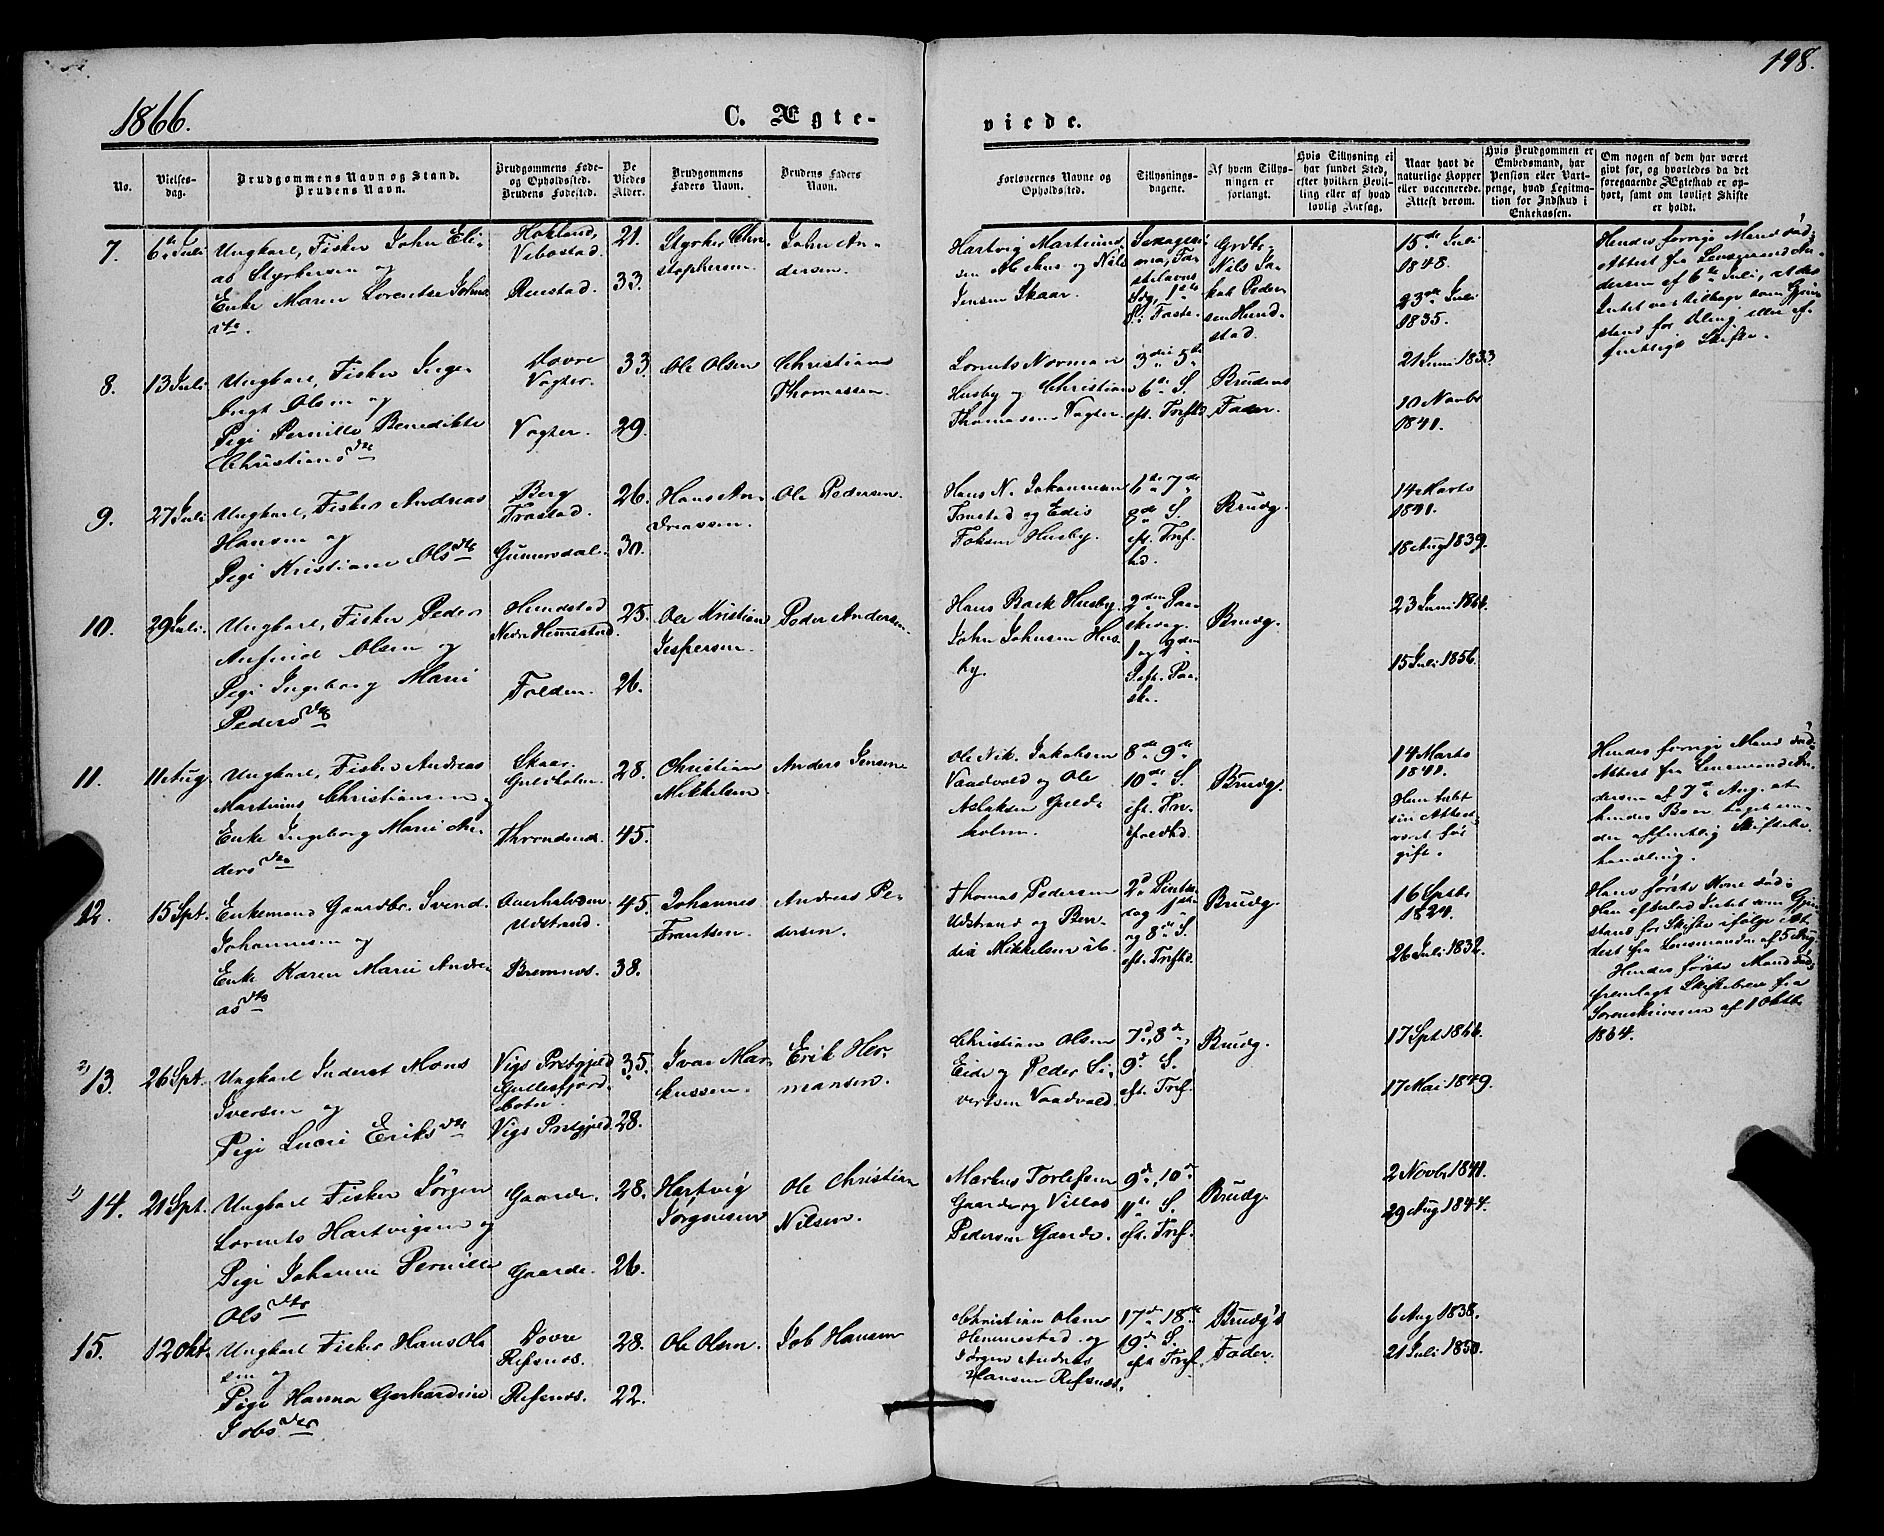 198.
1866.
C. Ægte-
viede.
No.
Vielses-
dag.
Brudgommens Navn og Stand.
Brudens Navn.
Brudgommens Føde-
og Opholdssted.
Brudens Fødested.
De
Viedes
Alder.
Brudgommens
Faders Navn.
Brudens Faders
Navn.
Forlovernes Navne og
Opholdssted.
Tillysnings-
dagene.
Af hvem Tillys-
ningen er
forlangt.
Hvis Tillysning ei
har fundet Sted,
efter hvilken Bevil-
ling eller af hvad
lovlig Aarsag.
Naar havt de
naturlige Kopper
eller vaccinerede.
Attest derom.
Hvis Brudgommen er
Embedsmand, har
Pension eller Vart-
penge, hvad Legitma-
tion for Indskud i
Enkekassen.
Om nogen af dem har været
givt før, og hvorledes da det
foregaaende Ægteskab er op-
hørt, samt om lovligt Skifte
er holdt.
7.
6te Juli
Ungkarl, Fisker John Eli-
as Styrkersen og
Enke Maren Lorentse Johns
dtr.
Hokland,
Vebostad.
Renstad.
21.
33.
Styrker Chri
stophersen.
John An-
dersen.
Hartvig Martinus
sen og Nils
Jensen Skaar.
Sexagesi
ma, Fa-
stelavns
Sdg, 1ste
S. i Faste.
Grdbr.
Nils Ja-
kob Peder
sen Hund-
stad.
15de Juli
1848.
23de Juli
1835.
Hendes forrige Mand død;
Attest fra Lensmand An-
dersen af 6te Juli, at der
Intet var tilbage som Gjen
stand for Deling eller of-
fentligt Skifte.
8.
13 Juli
Ungkarl, Fisker Inge-
brigt Olsen og
Pige Pernille Benedikte
Christiansdtr
Dovre
Vagter.
Vagter.
33.
29.
Ole Olsen
Christian
Thomassen.
Lorents Norman
Husby og Christian
Thomassen Vagter.
3die 5te
6te S.
eft. Trefkd
Brudens
Fader.
21 Juni 1833
10 Novbr
1841.
9.
27 Juli
Ungkarl, Fisker Andreas
Hansen og
Pige Kristiane Olsdtr
Berg
Trastad.
Gunnesdal.
26.
30.
Hans An-
dreassen.
Ole Pedersen.
Hans N. Johannesen
og Edis
Foksen Husby.
6te 7de
8de S.
eft. Tref-
hd.
Brudg.
14 Marts
1841.
18 Aug 1839.
10.
29 Juli.
Ungkarl, Fisker Peder
Anfind Olsen og
Pige Ingeborg Marie
Pedersdtr
Hundstad
Nedre Hemmestad.
Folden.
25.
26.
Ole Kristian
Jespersen.
Peder Andersen.
Hans Baek Husby.
John Johnsen Hus-
by.
2den Paa-
skedag.
1 og 2den
S. eft. Paa-
ske.
Brudg.
23 Juni 1866.
15 Juli 1856.
11.
11 Aug
Ungkarl, Fisker Andreas
Martinus Christiansen og
Enke Ingeborg Marie An-
dersdtr
Skaar
Guldholm.
Throndenæs.
28.
45.
Christian
Mikkelsen.
Anders Jensen
Ole Nik. Jakobsen
Vaadvold og Ole
Aslaksen Guld-
holm.
8de 9de
10de S.
eft. Tre-
foldhd.
Brudg.
14 Marts
1841.
Hun Intet
sin Attest
været før
gift.
Hendes forrige Mand død.
Attest fra Lensmand An-
dersen af 7de Aug. at
hendes Boer tages un-
der offentlig Skiftebe-
handling.
12.
15 Spt.
Enkemand Gaardbr. Svend
Johannesen og
Enke Karen Marie Andre
asdtr
Overhalden
Udstrand.
Bremnes.
45.
38.
Johannes
Frantsen.
Andreas Pe-
dersen.
Thomas Pedersen
Udstrand og Ben-
dix Mikkelsen ib.
2d Pintse
dag 1ste
og 8de S.
eft. Trefkd.
Brudg.
16 Septbr
1824.
26 Juli 1832.
Hans første Kone død;
Han efterlod Intet som Gjen
stand for Skifte ifølge At
test fra Lensmanden af 5 Aug
Hendes første Mand død;
fremlagt Skiftebrev fra
Sorenskriveren af 1 Oktbr
1864.
2)
13.
26 Spt.
Ungkarl Inderst Mons
Iversen og
Pige Lucie Eriksdtr
Vigs Prstgjeld
Gullesfjord-
botn.
Vigs Prstgjeld.
35.
28.
Ivar Mar-
kussen.
Erik Her-
mansen.
Christian Olsen
Eide og Peder Si-
vertsen Vaadvold.
7d, 8de,
9d S.
eft. Tref.
Brudg.
17 Spt 1866.
17 Mai 1849.
1)
14.
21 Spt.
Ungkarl Fisker Jørgen
Lorents Hartvigsen og
Pige Johanne Pernille
Olsdtr
Gaarde.
Gaarde.
28.
26.
Hartvig
Jørgensen
Ole Christian
Nilsen.
Markus Torlefsen
Gaarde og Villas
Pedersen Gaarde.
9de, 10de
11te S.
eft. Tref.
Brudg.
2 Novbr 1841.
29 Aug 1844.
15.
12 Okt.
Ungkarl Fisker Hans Ol
sen og
Pige Hanna Gerhardine
Jobsdtr
Dovre
Refsnes.
Refsnes.
28.
22.
Ole Olsen.
Job Hansen
Christian Olsen
Hemmestad og
Jørgen Andreas
Hansen Refsnes.
17de 18de
19de S.
eft Tref.
Brudg's
Fader.
6 Aug 1838.
21 Juli 1850.